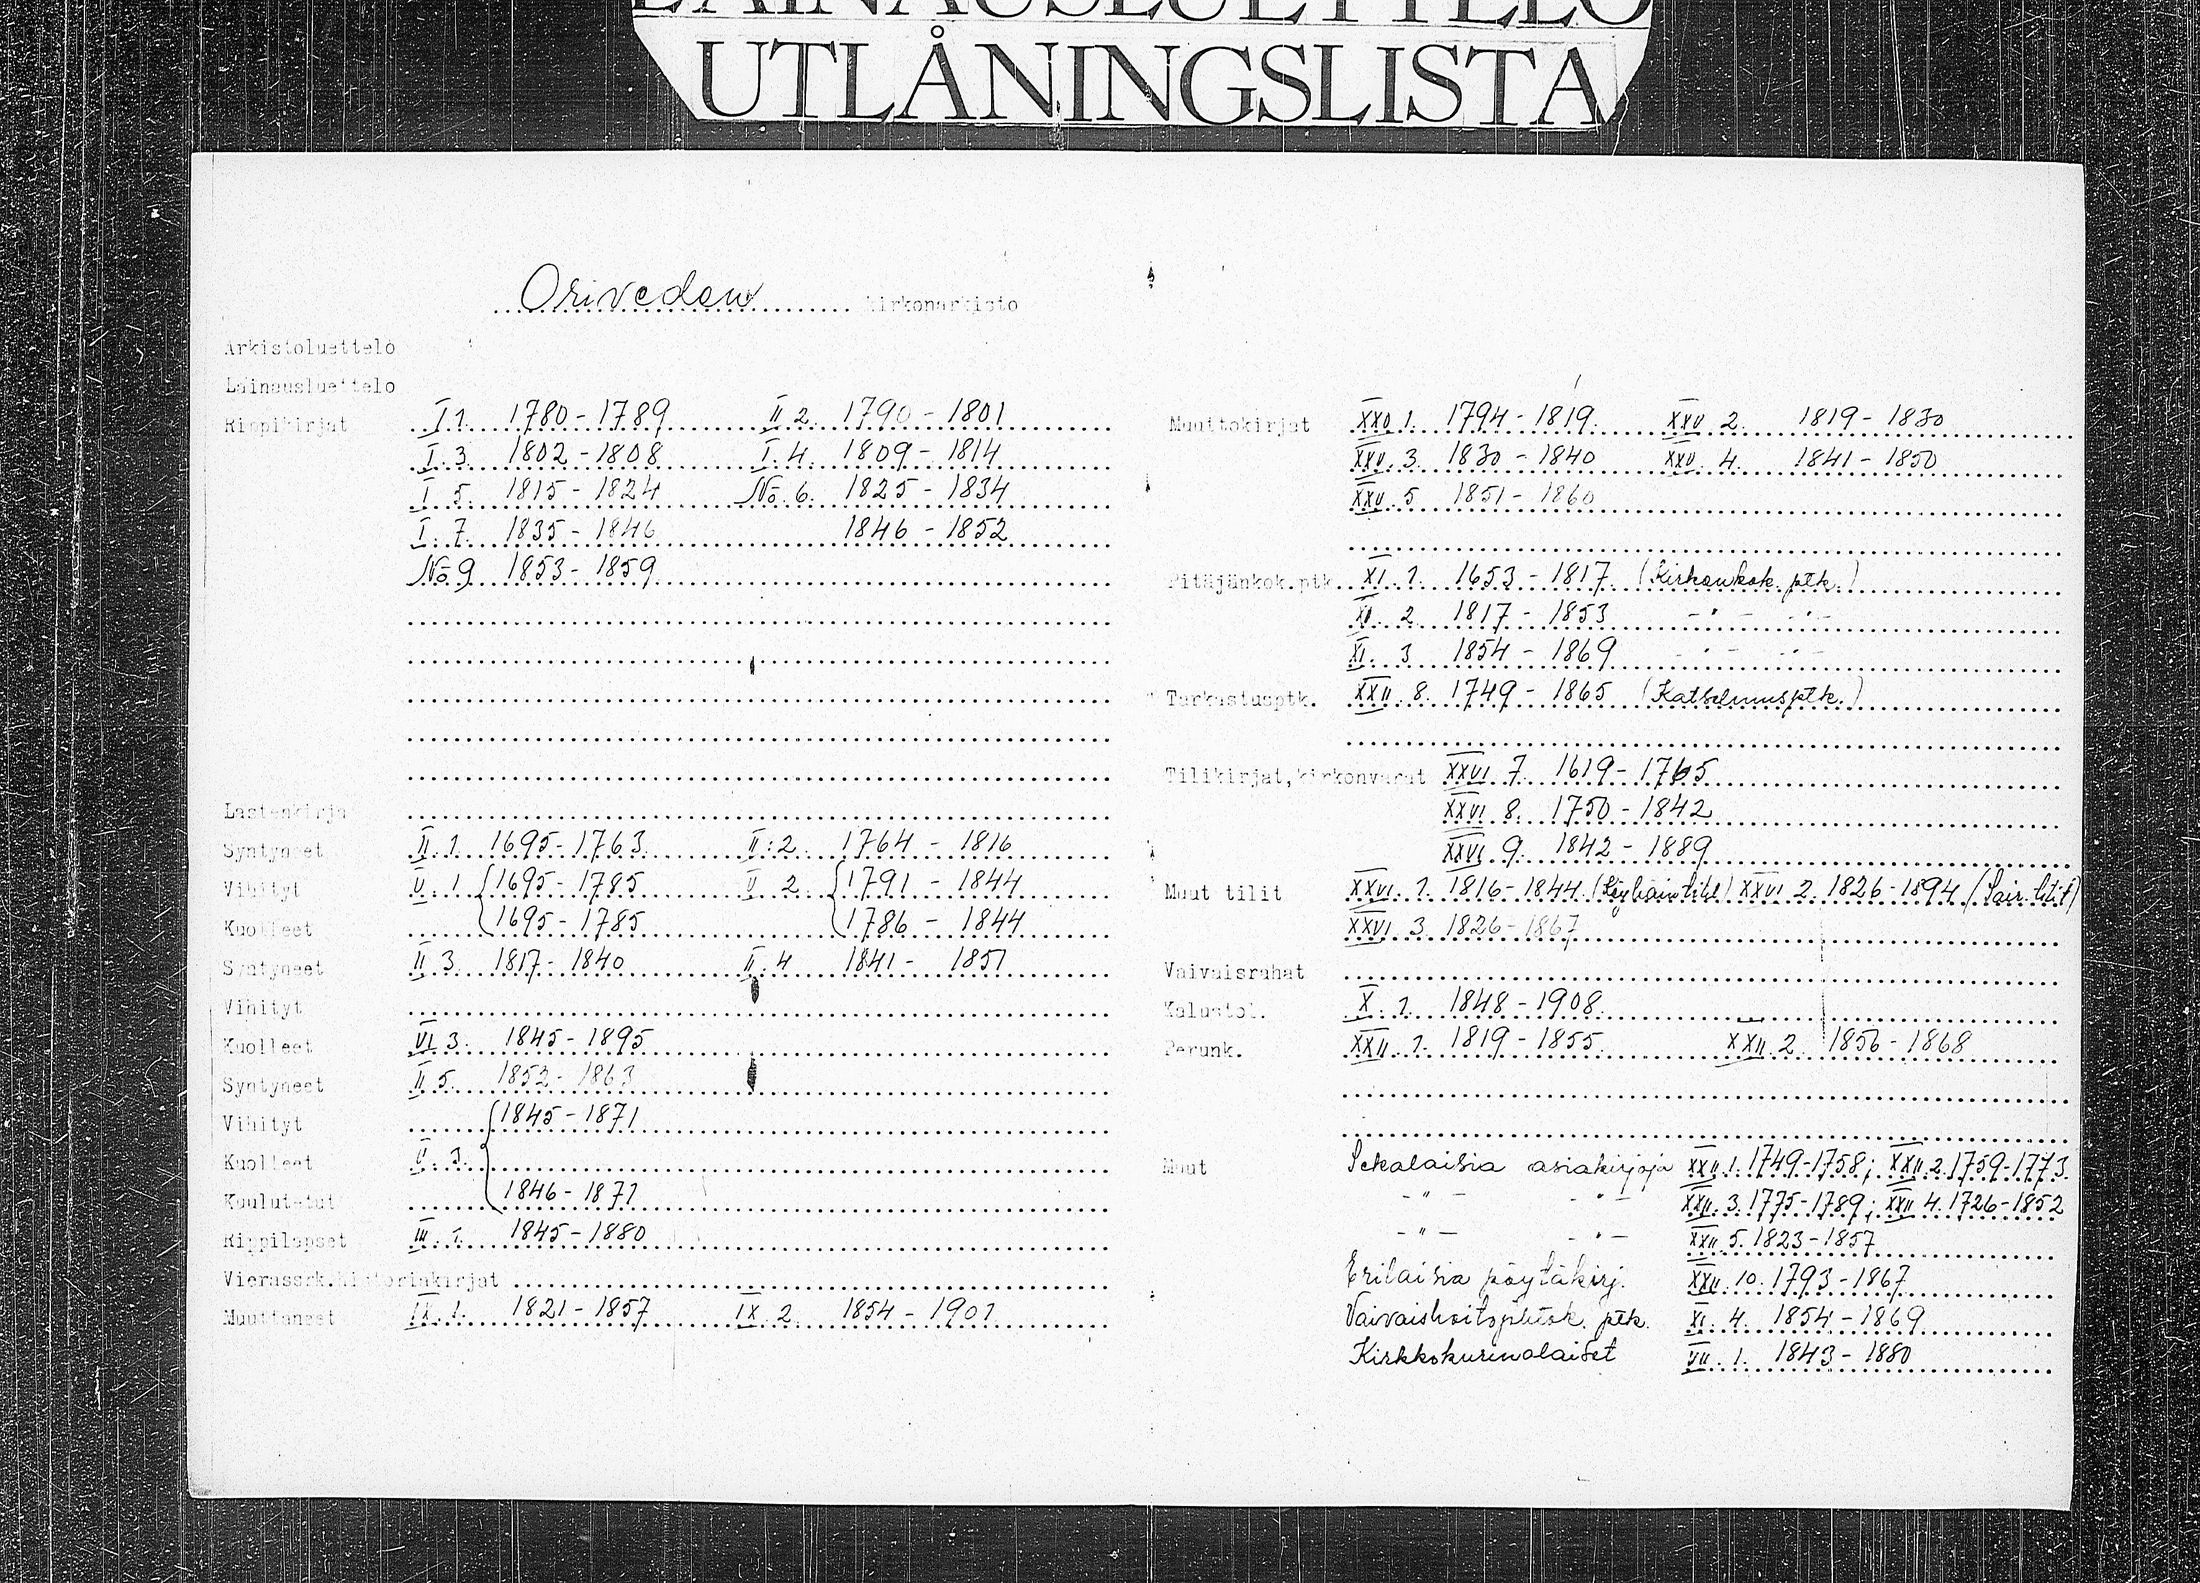 LAINAUSLUETTELO
UTLÅNINGSLISTA
Oriveden kirkonarkisto
Arkistoluettelo
Lainausluettelo
Rippikirjat I 1. 1780-1789 II 2. 1790-1801
I. 3. 1802-1808 I. 4. 1809-1814
I 5. 1815-1824 No. 6. 1825-1834
I. 7. 1835-1846 1846-1852
No 9 1853-1859
Lastenkirja
Syntyneet II. 1. 1695-1763 II:2. 1764-1816
Vihityt V. 1 1695-1785 V 2. 1791-1844
Kuolleet 1695-1785 1786-1844
Syntyneet II 3. 1817-1840 II. 4 1841-1851
Vihityt
Kuolleet VI 3. 1845-1895
Syntyneet II 5. 1852-1863
Vihityt 1845-1871
Kuolleet V. 3.
Kuulutetut 1846-1871
Rippilapset III. 1. 1845-1880
Vierassrk.historiakirjat
Muuttaneet IX. 1. 1821-1857 IX. 2. 1854-1901
Muuttokirjat XXV 1. 1794-1819. XXV 2. 1819-1830
XXV. 3. 1830-1840 XXV. 4. 1841-1850
XXV. 5 1851-1860
Pitäjänkok.ptk. XI. 1. 1653-1817. (Kirkonkok. ptk.)
XI. 2. 1817-1853 -"- -"-
XI. 3 1854-1869 -"- -"-
Tarkastusptk. XXII. 8. 1749-1865 (Katselmusptk.)
Tilikirjat,kirkonvarat XXVI 7. 1619-1765
XXVI 8. 1750-1842
XXVI. 9. 1842-1889
Muut tilit XXVI. 1. 1816-1844. XXVI 2. 1826-1894 (Sair. tilit)
XXVI. 3. 1826-1867
Vaivaisrahat
Kalustol. X. 1. 1848-1908.
Perunk. XXII. 1. 1819-1855. XXII. 2. 1856-1868
Muut Sekalaisia asiakirjoja XXII. 1. 1749-1758; XXII. 2. 1759-1773.
-"- -"- XXII. 3. 1775-1789; XXII 4. 1726-1852
-"- -"- XXII. 5. 1823-1857
Erilaisia pöytäkirj. XXII. 10. 1793-1867
ptk. XI. 4. 1854-1869
Kirkkokurinalaiset VII. 1. 1843-1880